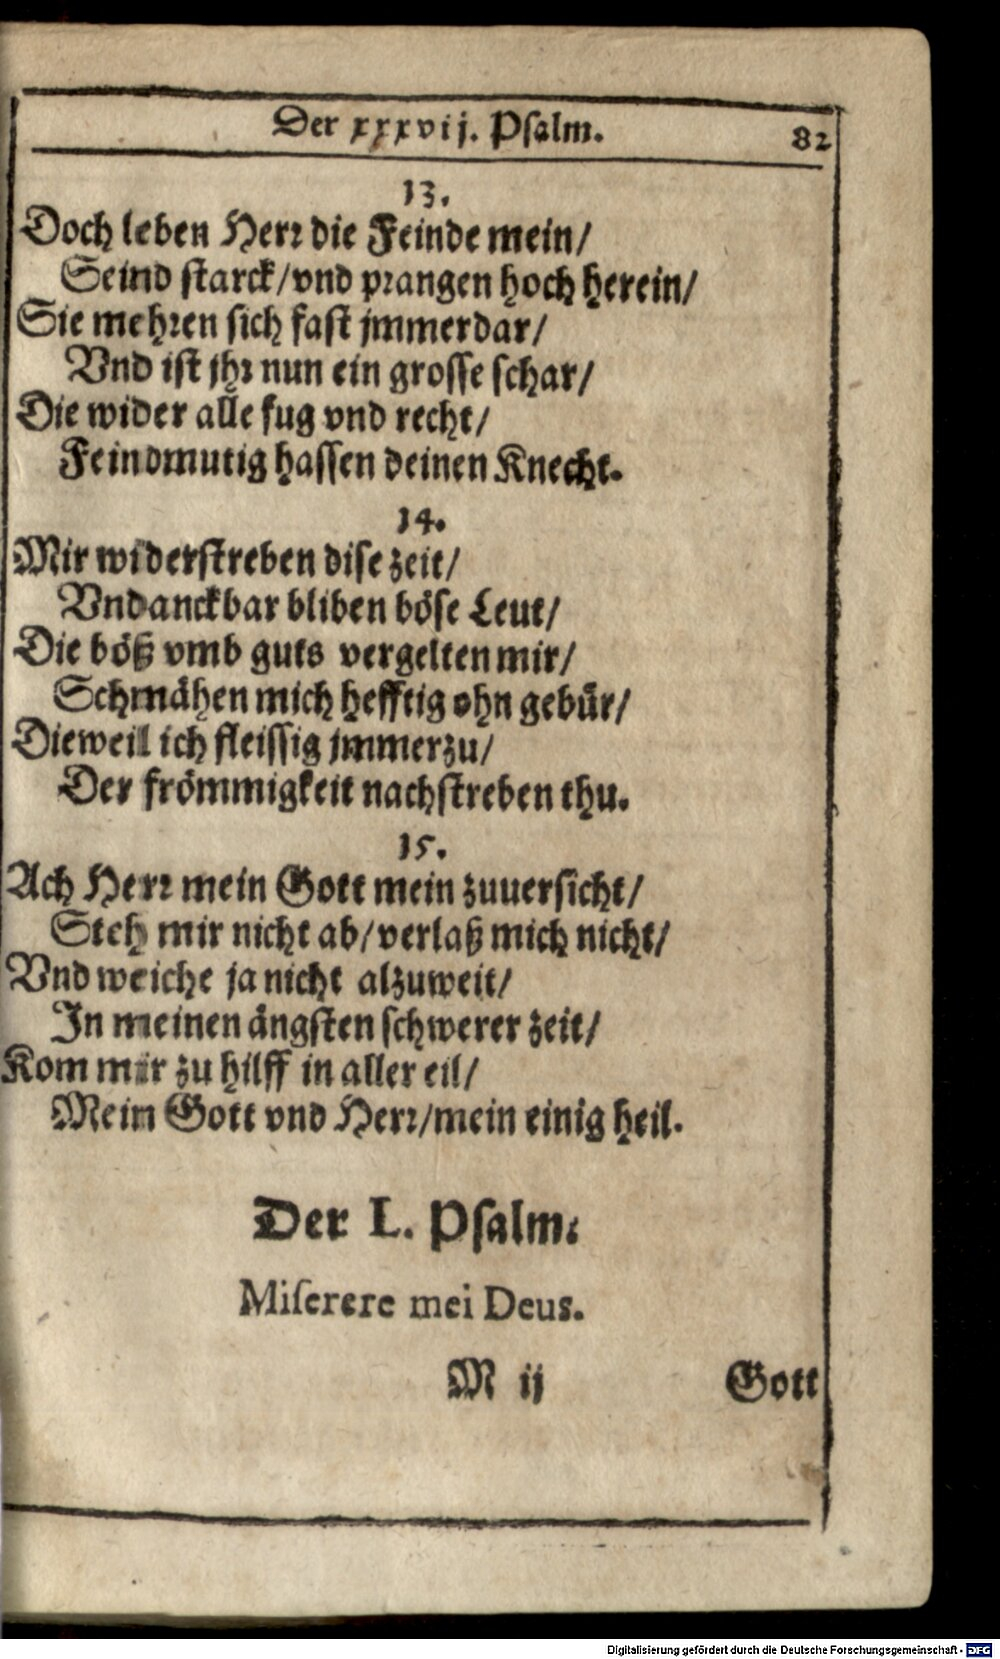 Der xxxvij. Psalm. 82
13.
Doch leben Herr die Feinde mein/
Seind starck/vnd prangen hoch herein/
Sie mehren sich fast jmmerdar/
Vnd ist jhr nun ein grosse schar/
Die wider alle fug vnd recht/
Feindmutig hassen deinen Knecht.
14.
Mir widerstreben dise zeit/
Vndanckbar bliben böse Leut/
Die böß vmb guts vergelten mir/
Schmähen mich hefftig ohn gebür/
Dieweil ich fleissig jmmerzu/
Der frömmigkeit nachstreben thu.
15.
Ach Herr mein Gott mein zuuersicht/
Steh mir nicht ab/verlaß mich nicht/
Vnd weiche ja nicht alzuweit/
In meinen ängsten schwerer zeit/
Kom mir zu hilff in aller eil/
Mein Gott vnd Herr/mein einig heil.
Der L. Psalm.
Miserere mei Deus.
M ij Gott
Digitalisierung gefördert durch die Deutsche Forschungsgemeinschaft - DFG